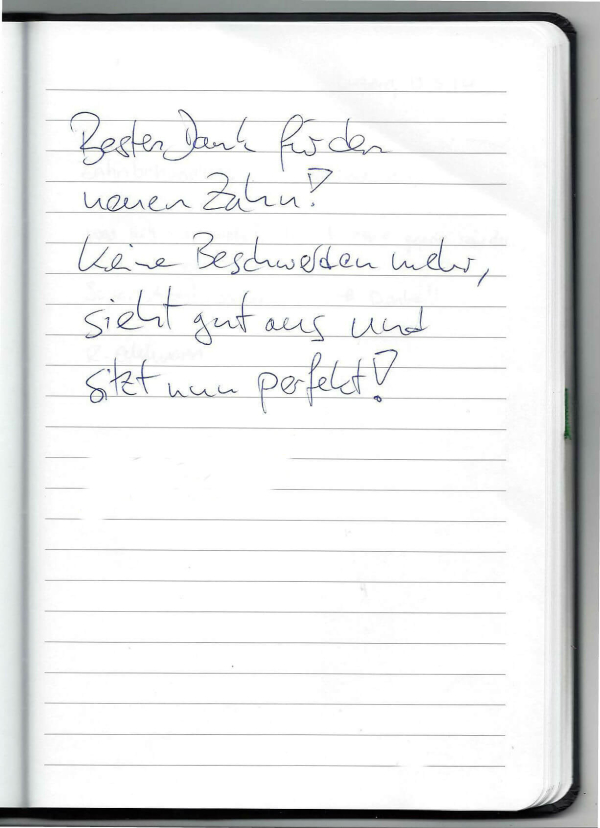 Besten Dank für den
neuen Zahn!
Keine Beschwerden mehr,
sieht gut aus und
sitzt nun perfekt!